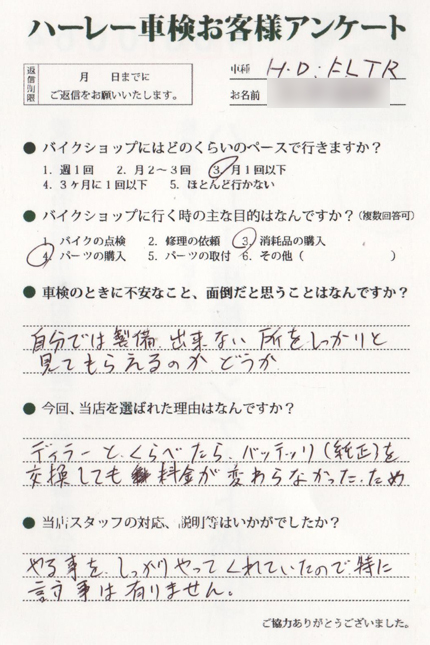 ハーレー車検お客様アンケート
返信期限
月　日までに
ご返信をお願いいたします。
車種 H.D.FLTR
お名前
● バイクショップにはどのくらいのペースで行きますか？
1. 週1回　2. 月2～3回　3. 月1回以下
4. 3ヶ月に1回以下　5. ほとんど行かない
● バイクショップに行く時の主な目的はなんですか？(複数回答可)
1. バイクの点検　2. 修理の依頼　3. 消耗品の購入
4. パーツの購入　5. パーツの取付　6. その他（　　　）
● 車検のときに不安なこと、面倒だと思うことはなんですか？
自分では製備出来ない所をしっかりと
見てもらえるのかどうか
● 今回、当店を選ばれた理由はなんですか？
ディラーとくらべたら、バッテッリ(純正)を
交換しても料金が変わらなかった、ため
● 当店スタッフの対応、説明等はいかがでしたか？
やる事を、しっかりやってくれていたので、特に
言う事は有りません。
ご協力ありがとうございました。